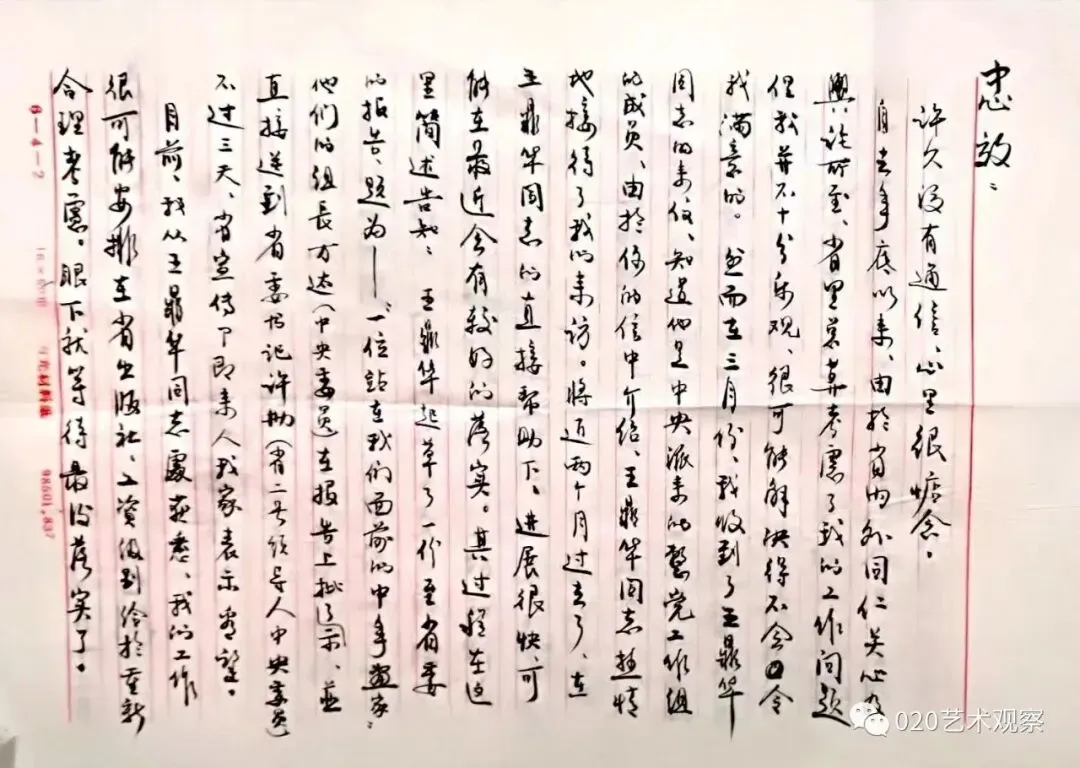 忠效：
许久没有通信、心里很惦念。
自去年底以来、由於省内外同仁关心及
舆论所至、省里总算考虑了我的工作问题
但我并不十分乐观、很可能解决得不会令
我满意的。然而在三月份、我收到了王鼎华
同志的来信、知道他是中央派来的整党工作组
的成员、由於你的信中介绍、王鼎华同志热情
地接待了我的来访。将近两个月过去了、在
王鼎华同志的直接帮助下、进展很快、可
能在最近会有较好的落实。其过程在这
里简述告知：王鼎华起草了一份至省委
的报告、题为——“一位站在我们面前的中年画家”
他们的组长方达（中央委员）在报告上批了示、并
直接送到省委书记许勐（省二号领导人中央委员
不过三天、省宣传部即来人我家表示看望。
目前、我从王鼎华同志处获悉、我的工作
很可能安排在省出版社、工资级别给於重新
合理考虑。眼下就等待最后落实了。
6—4—2
98601.837
020艺术观察